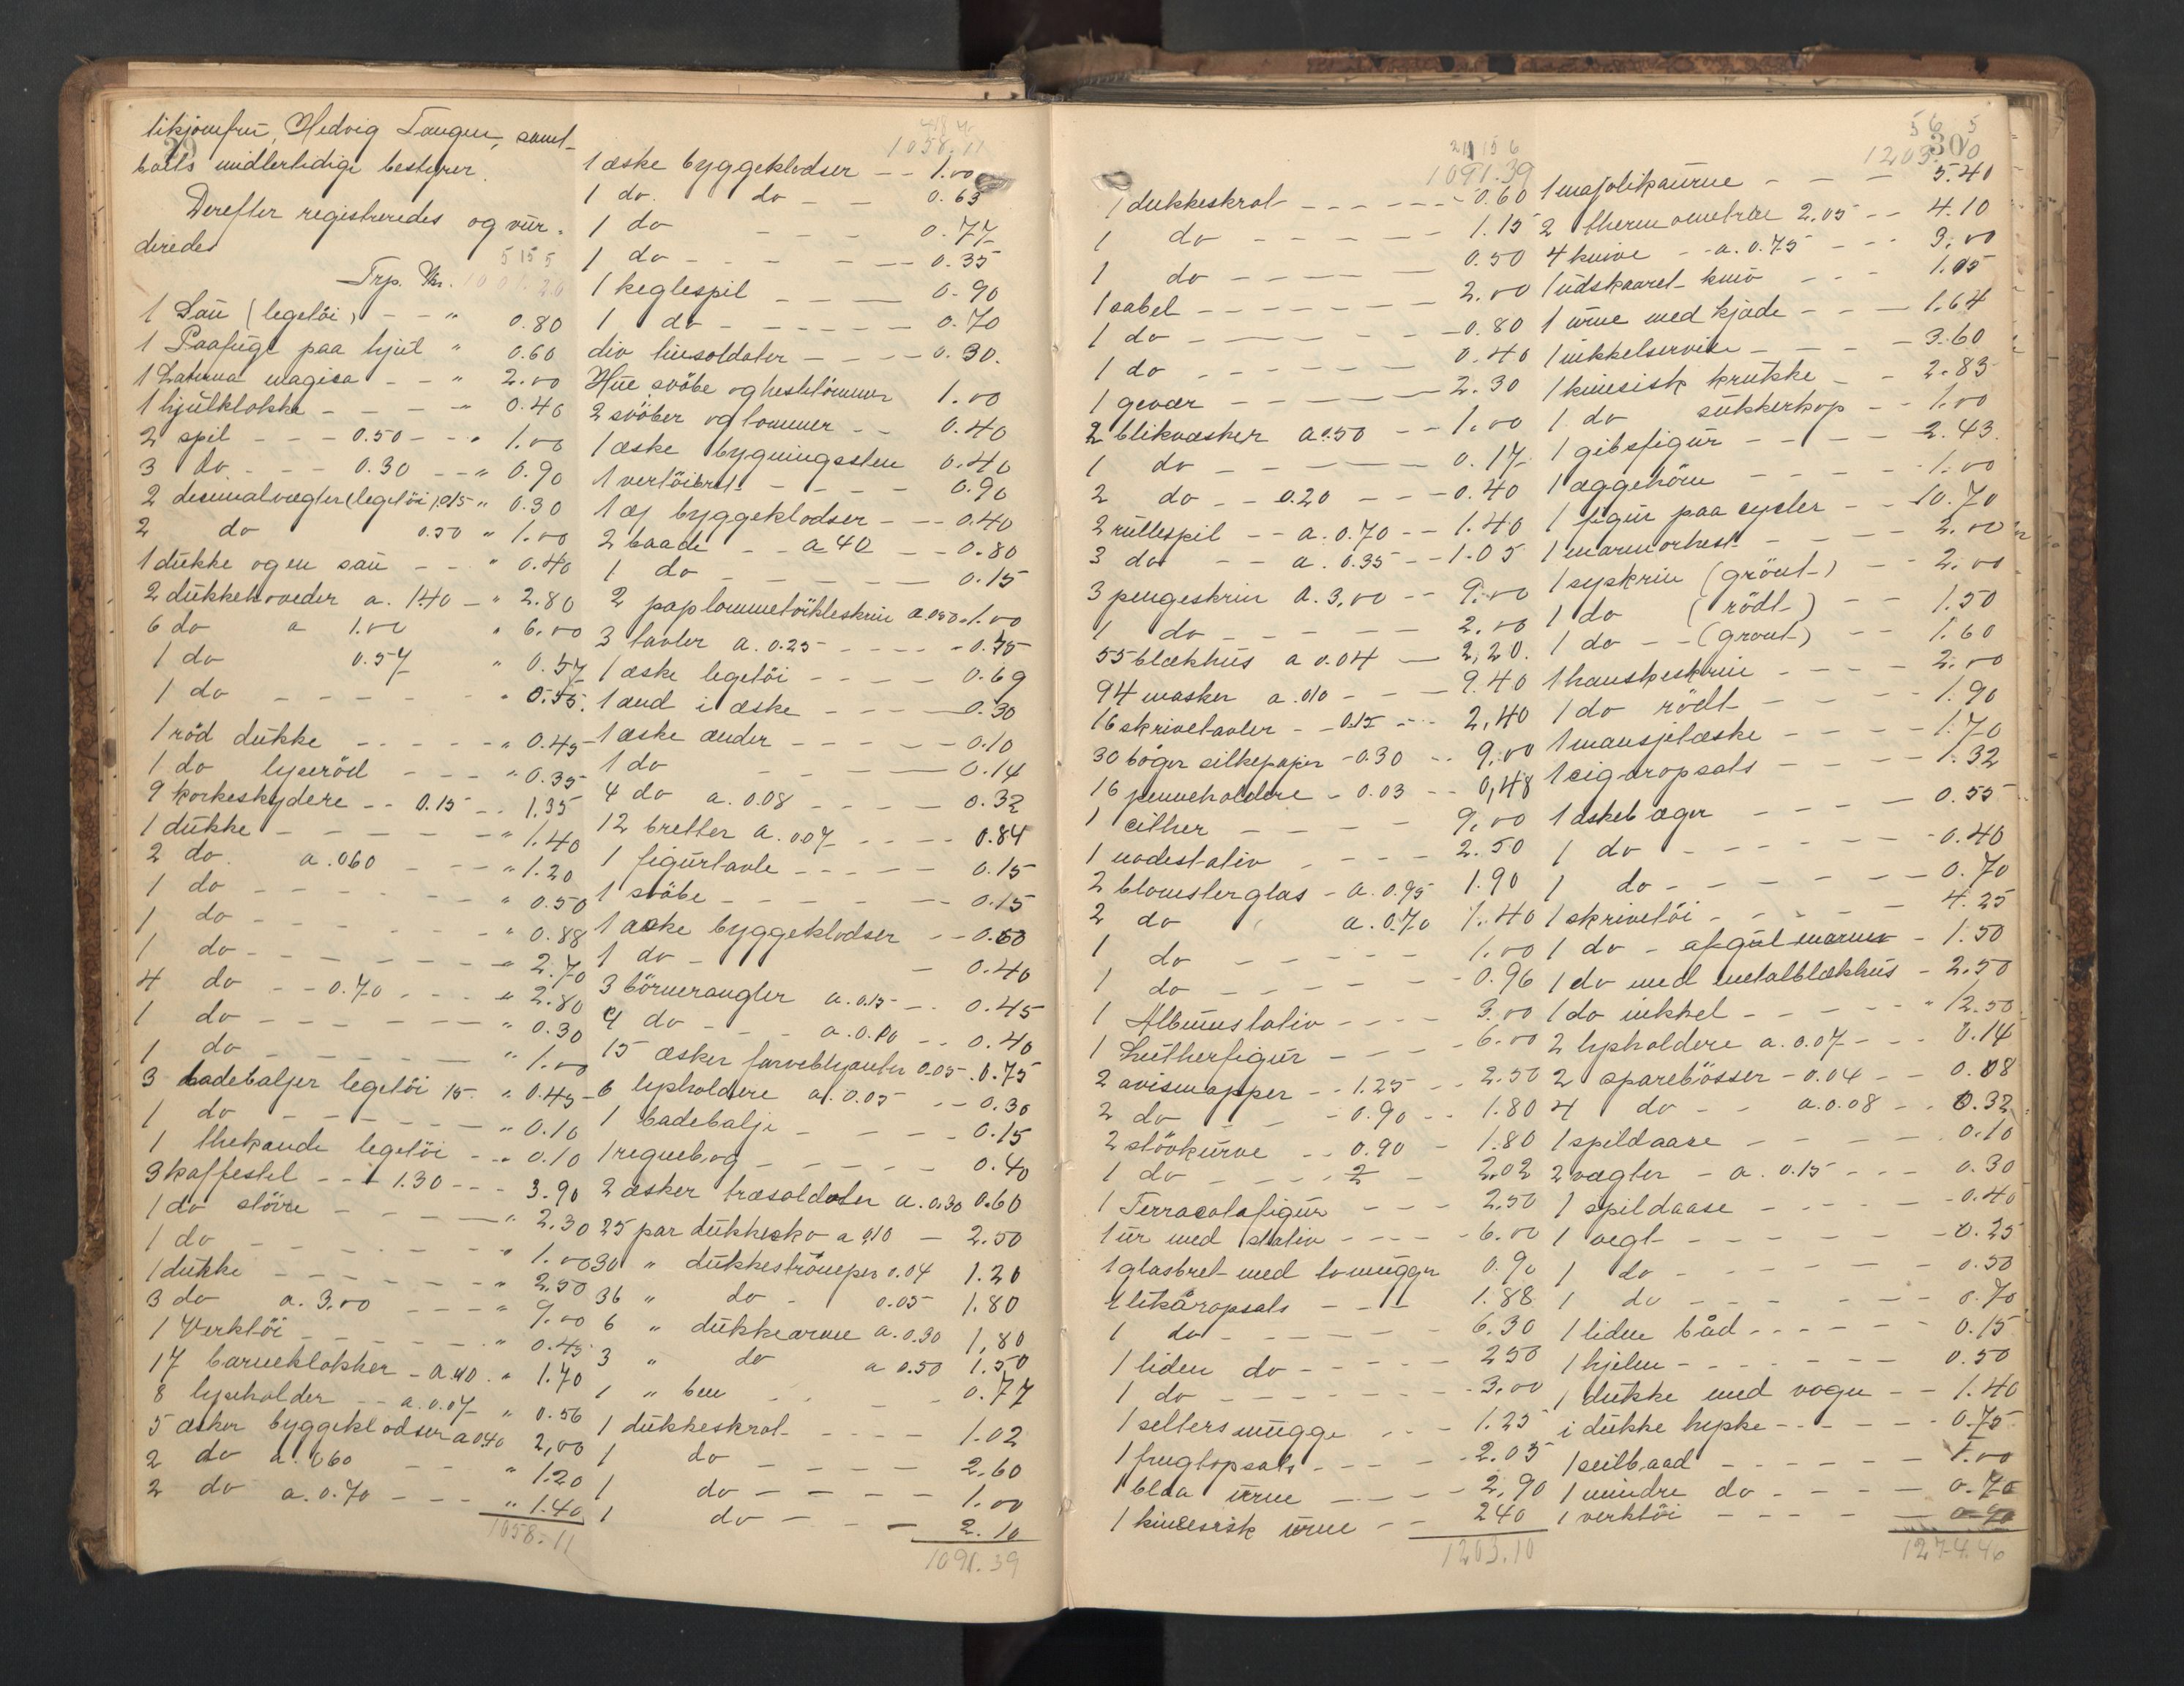 29
Hedvig Tangen, samt-
bolts midlertidige bestyrer.
Derefter registreredes og vür-
deredes
5155
Trp. Kr.
1 Saü (legetöi) - - " 0.80
1 Paafügl paa hjül " 0.60
1 Laterna magica - - " 2.00
1 hjülklokke - - - - " 0.40
2 spil - - - 0.50 - - " 1.00
3 do - - - 0.30 - - " 0.90
2 decimalvægter (legetöi) 0.15 " 0.30
2 do 0.50 " 1.00
1 dükke og en saü - - " 0.40
2 dükkehoveder a. 1.40 - " 2.80
6 do a 1.00 " 6.00
1 do 0.57 " 0.57
1 do - - - - - " 0.55.
1 röd dükke - - - - - " 0.45
1 do lyseröd - - - " 0.35
9 korkeskydere - - 0.15 - - 1.35
1 dükke - - - - - - " 1.40
2 do. a. 060 - - - " 1.20
1 do - - - - - - " 0.50
1 do - - - - - - " 0.88
1 do - - - - - - " 2.70
4 do - - 0.70 - - - " 2.80
1 do - - - - - - " 0.30
1 do - - - - - - " 1.00
3 badebaljer legetöi 15. " 0.45
1 do - - - - - " 0.10
1 thekande legetöi - - " 0.10
3 kaffestel - - 1.30 - - - 3.90
1 do större - - - - " 2.30
1 do - - - - - " 1.00
1 dükke - - - - - - " 2.50
3 do a. 3.00 - - - " 9.00
1 Verktöi - - - - - " 0.45
17 barneklokker - a. 10 . " 1.70
8 lyseholder - - a. 0.07 " 0.56
5 æsker byggeklodser a 040 2,00
2 do a. 060 - - " 1.20
2 do a. 0.70 - - - " 1.40
1058.11
1058.11
1 æske byggeklodser - - 1.00
1 do. do - - 0.63
1 do - - - 0.77
1 do - - - - - - 0.35
1 keglespil - - - - 0.90
1 do - - - - - - 0.70
div tinsoldater - - - - 0.30.
Hüe, svöbe og hestetömmer 1.00
2 svöber og lommer - - 0.40
1 æske bygningssten 0.40
1 vertöibret - - - - 0.90
1 æs byggeklodser - - - 0.40
2 baade - - a 40 - - 0.80
1 do - - - - - - 0.15
2 paplommetörkleskrin a 0.50 " 1.00
3 tavler a. 0.25 - - - - - 0.75
1 æske legetöi - - - - 0.69
1 and i æske - - - - 0.30
1 æske ænder - - - - - 0.10
1 do - - - - - 0.14
4 do a. 0.08 - - - - 0.32
12 bretter a. 0.07 - - - - 0.84
1 figürtavle - - - - - 0.15
1 svöbe - - - - - - - 0.15
1 æske byggeklodser - - 0.63
1 do - - 0.40
3 börnerangler a. 0.15 - - . 0.45
4 do - - - a. 0.10 - - 0.40
15 æsker farveblyanter 0.05 . 0.75
6 lysholdere a. 0.05 - - 0.30
1 badebalje - - - - - 0.15
1 regnebog - - - - - 0.40
2 æsker træsoldater a. 0.30 0.60
25 par dükkesko a 0.10 - 2.50
30 " dükkeströmper 0.04 1.20
36 " do - 0.05 1.80
6 " dükkearme a. 0.30 1,80
3 " do a 0.50 1.50
1 " ben - - - - 0.77
1 dükkeskrot - - - - 1.02
1 do - - - - 2.60
1 do - - - - 1.00
1 do - - - 2.10
1091.39
1091.39
1 dukkeskrot - - - - - - 0.60
1 do - - - - - - 1.15
1 do - - - - - 0.50
1 sabel - - - - - - - 2.00
1 do - - - - - - - 0.80
1 do - - - - - - 0.40
1 gevær - - - - - - 2.30
2 blikvæsker a 0.50 - - 1.00
1 do - - - - - - 0.17
2 do - - 0.20 - - - 0.40
2 rüllespil - - a. 0.70 - - 1.40
3 do - - a. 0.35 - - 1.05
3 pengeskrin a. 3,00 - - 9.00
1 do - - - - - - 2.00
55 blækhüs a 0.04 - 2,20.
94 masker a. 010 - - - 9.40
16 skrivetavler - - 0.15 - - - 2,40
30 böger silkepapir - 0.30 - - 9,00
16 penneholdere - 0.03 - - 0,48
1 cither - - - - - 9,00
1 nodestativ - - - - 2.50
2 blomsterglas - a. 0.95 1.90
2 do a. 0.70 1.40
1 do - - - - - 1.00
1 do - - - - - 0.96
1 Albümstativ - - - - 3.00
1 Lütherfigür - - - - 6.00
2 avismapper - - 1.25 - - 2.50
2 do - 0.90 - - 1.80
2 stövkürve - - 0.90 - 1.80
1 do - - - - 2 - 2.02
1 Terracotafigür - - - 2,50
1 ür med stativ - - - - 6.00
1 glasbret med to müggr 0.90
1 likøropsats - - - 1.88
1 do - - - - - - 6.30
1 liden do - - - - - 250
1 do - - - - - - - 3,00
1 selters mügge - - - 1.25
1 frugtopsats - - - - 2.05
1 blaa ürne - - - - 2,90
1 kinesisk ürne - - 240
1203.10
30
1203.10
1 majolikaürne - - - 5.40
2 thermometre 2.05 - - 4.10
4 knive - - a. 0.75 - - - 3.00
1 üdskaaret kniv - - - 1.05
1 ürne med kjæde - - - 1.64
1 nikkelservice - - - - 3.60
1 kinesisk krükke - - 2.83
1 do sükkerkop - - 1.00
1 gibsfigür - - - - - 2.43.
1 æggehöne - - - - - 1.00
1 figür paa cycler - - 10.70
1 marmorhest - - - - - 2.00
1 syskrin (grönt) - - 2.00
1 do (rödt) - - 1.50
1 do - - (grönt) - - 1.60
1 hanskeskrin - - - - 2.00
1 do rödt - - 1.90
1 mansjetæske - - - - 1.70
1 cigaropsats - - - - 1.32
1 askebæger - - - - 0.55
1 do - - - - - - - 0.40
1 do - - - - - - - 0.70
1 skrivetöi - - - - - 4.25
1 do - af gül marmor - 1.50
1 do med metalblækhüs - 2.50
1 do nikkel - - - - - " 12.50
2 lysholdere a. 0.07 - - - 0.14
2 sparebösser - 0.04 - - 0.08
4 do - - a. 0.08 - - 0.32
1 spildaase - - - - - 0.10
2 vægter - a. 0.15 - - - 0.30
1 spildaase - - - - - 0.40
1 vegt - - - - - - - 0.25
1 do - - - - - - 0.50
1 do - - - - - - 0.70
1 liden båd - - - - - - 0.15
1 hjelm - - - - - - - 0.50
1 dukke med vogn - - 1.40
1 dükke hepke - - - - - 0.75
1 seilbaad - - - - - - 1.00
1 mindre do - - - - 0.70
1 verktöi - - - - -
1274.40